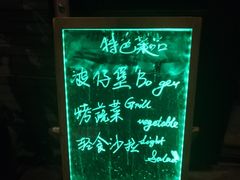 特色菜品
汉仔堡 Boger
烤蔬菜 Grill
vegetable
轻食沙拉 light
salad